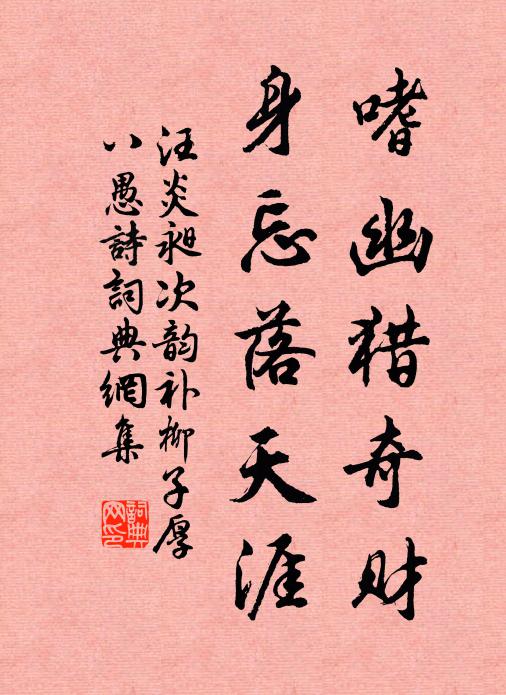 嗜幽猎奇财
身忘落天涯
汪炎昶次韵补柳子厚
八愚詩詞典網集
詞典
网印